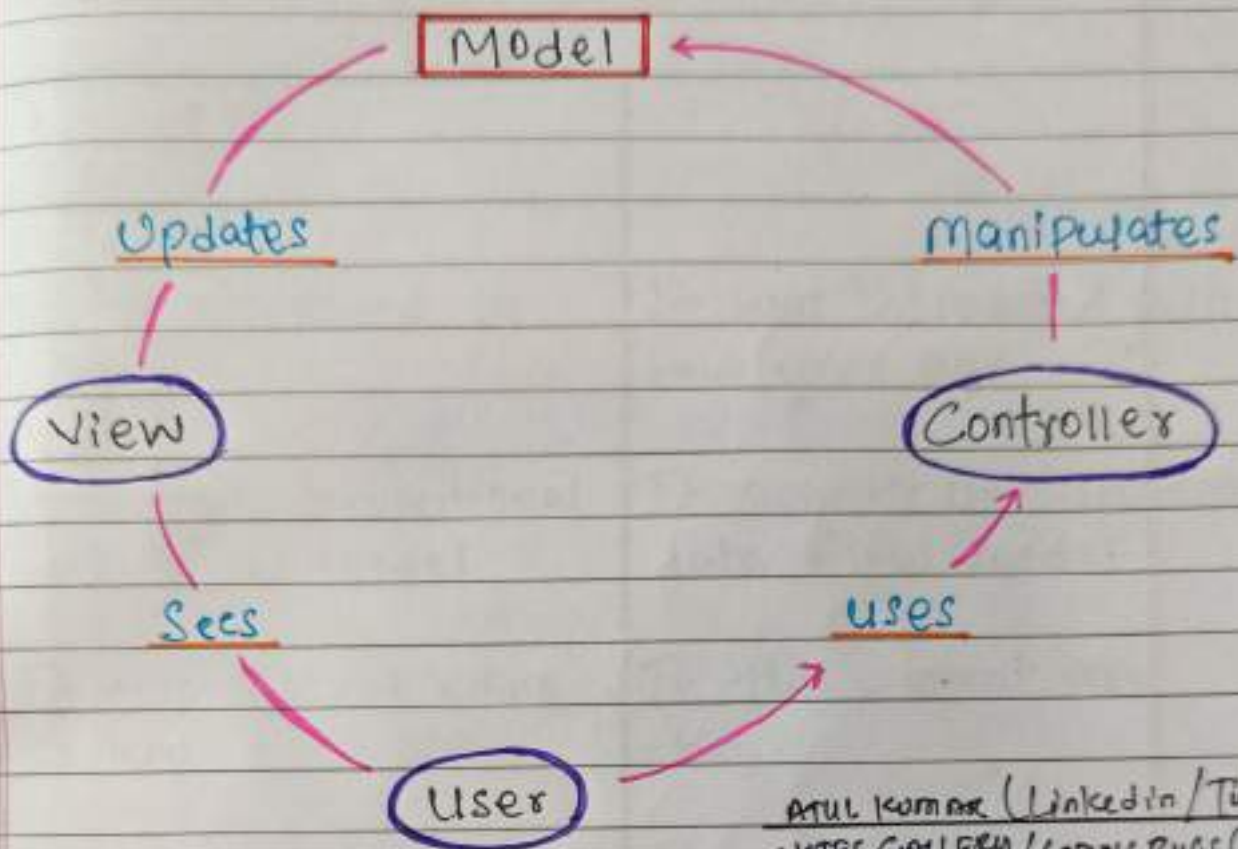 Model
Updates
Manipulates
View
Controller
Sees
uses
User
ATUL KUMAR (Linkedin/
NOTES GALLERY/